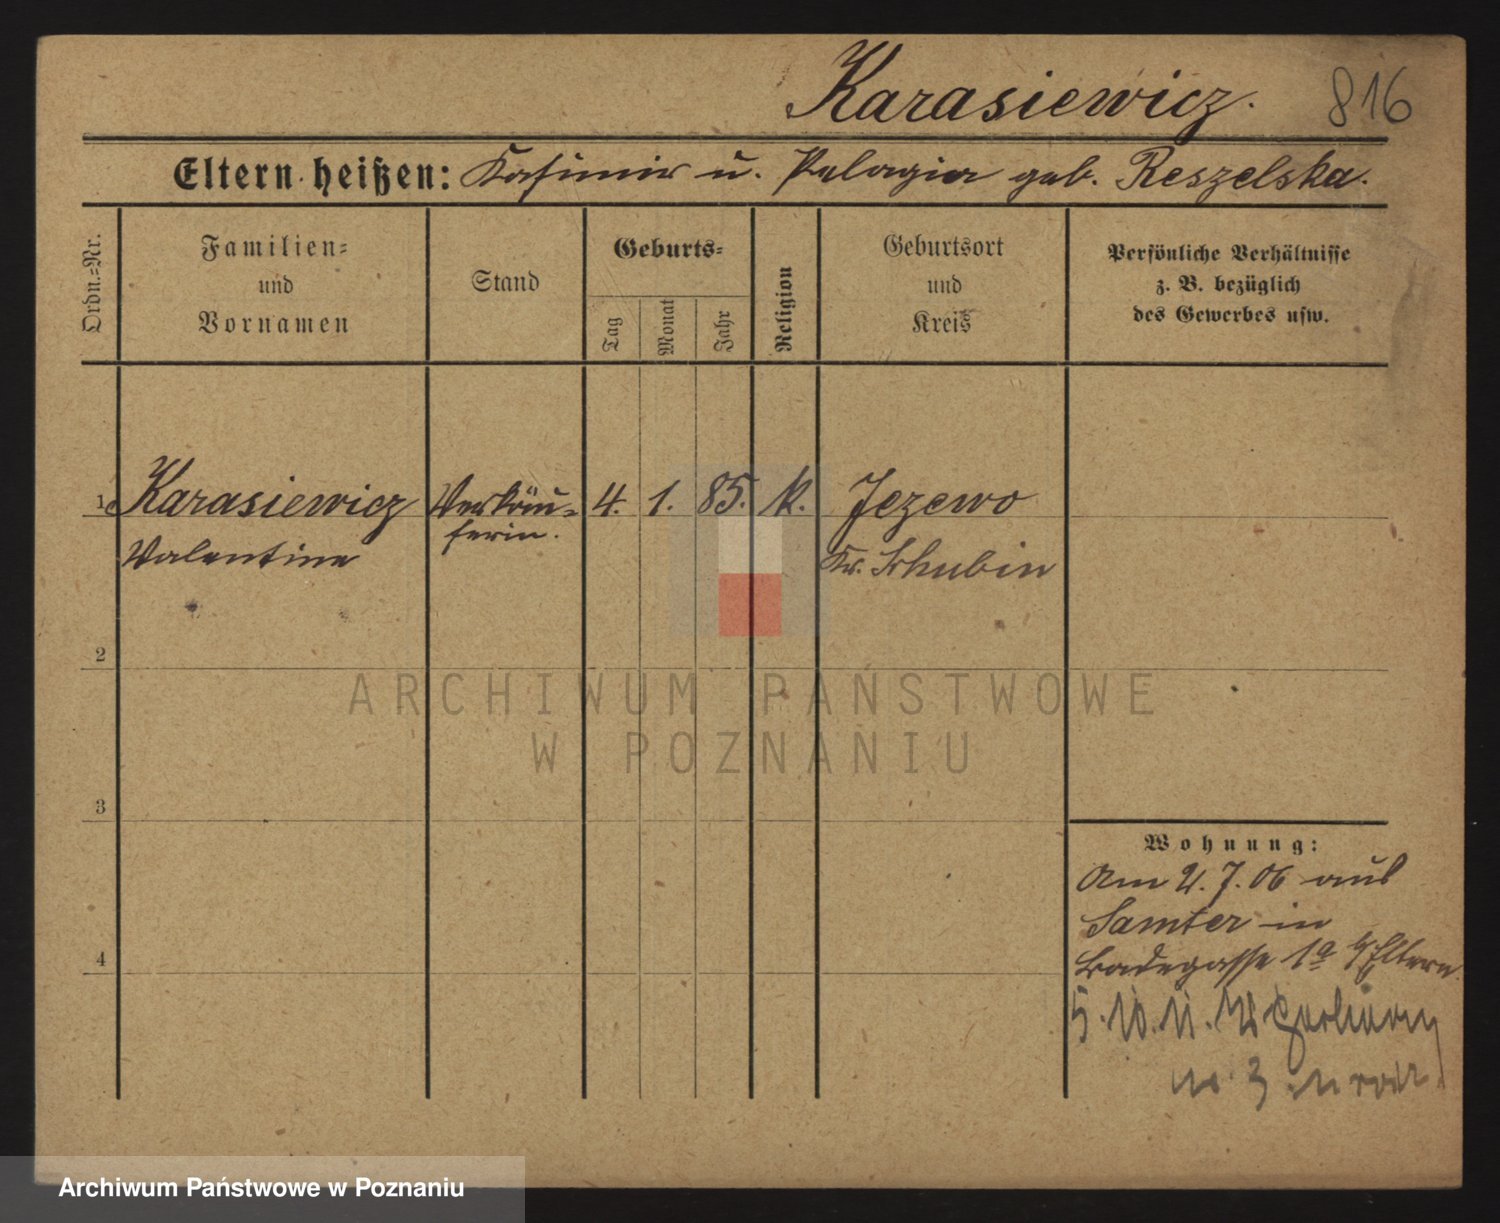 Karasiewicz. 816
Eltern heißen: Kasimir u. Pelagia geb. Reszelska.
Ordn.=Nr.
Familien=
und
Vornamen
Stand
Geburts=
Tag
Monat
Jahr
Religion
Geburtsort
und
Kreis
Persönliche Verhältnisse
z. B. bezüglich
des Gewerbes usw.
1 Karasiewicz Verkäu= 4. 1. 85. k. Jezewo
Valentine ferin. Kr. Schubin
2
3
4
Wohnung:
Am 2. 7. 06 aus
Samter in
Badegasse 1a b/Eltern
5. 10. 11.
3
ARCHIWUM PAŃSTWOWE
W POZNANIU
Archiwum Państwowe w Poznaniu